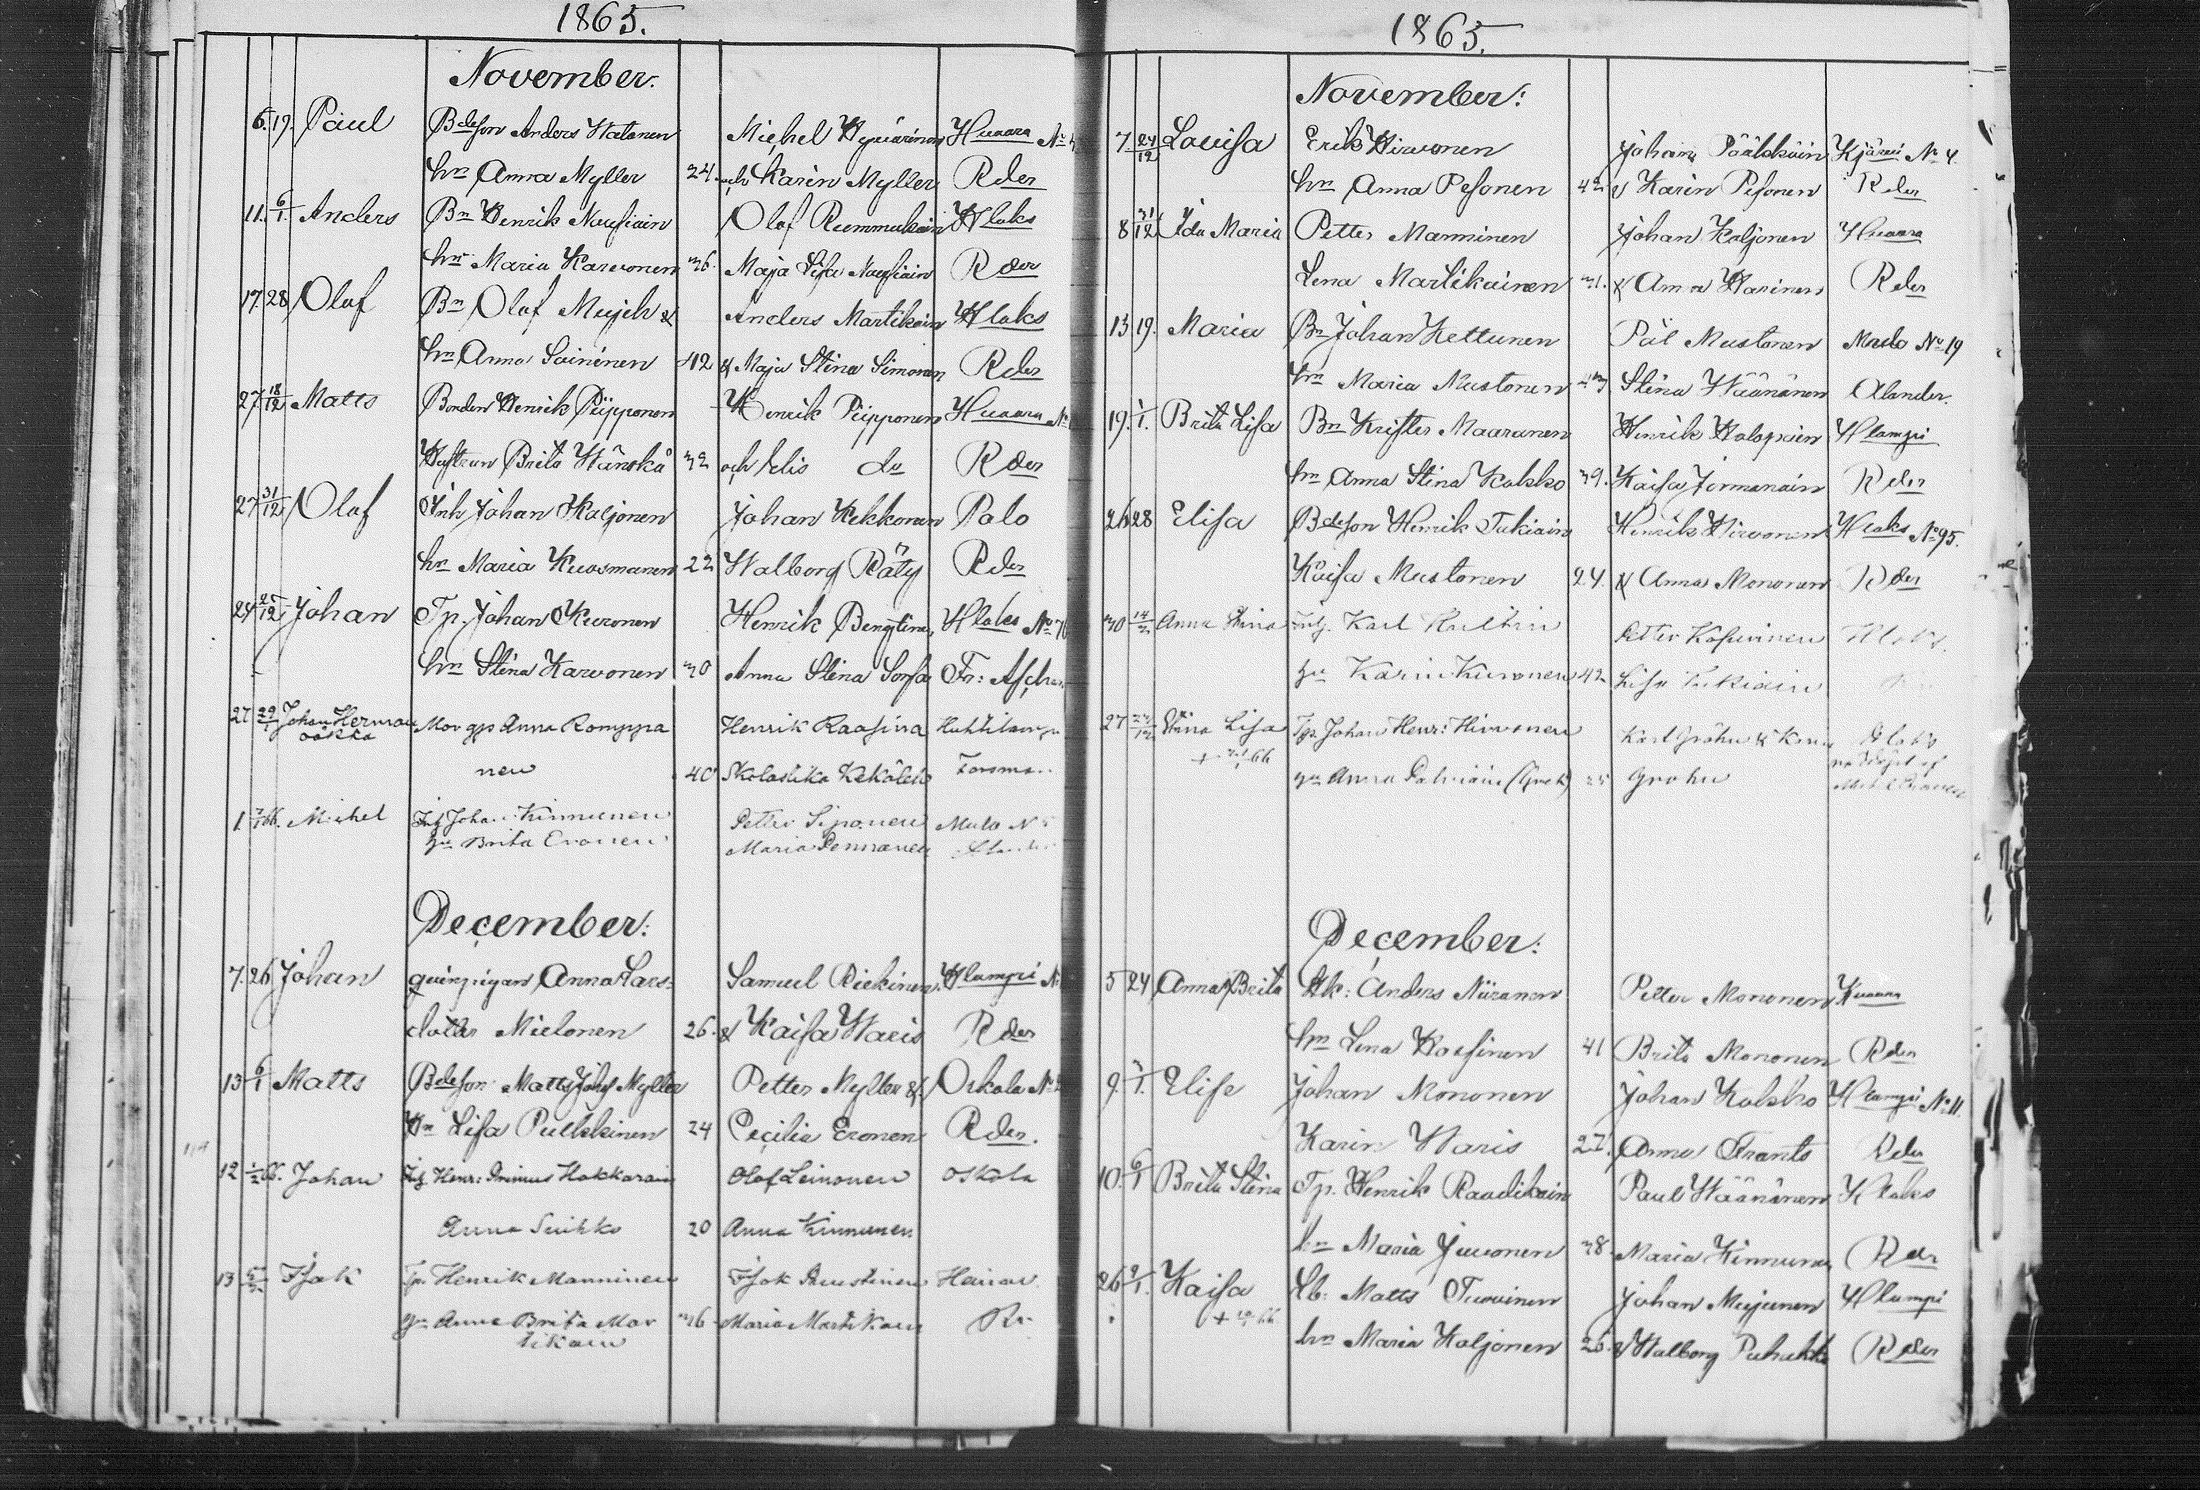 1865.
November.
6. 19. Paul Bdeson Anders Hatanen Michel Hyvärinen Huaara No
hn Anna Myller 24. och Karin Myller Rder
11. 6/1. Anders Bn Henrik Naufiain Olof Rummukain Hlaks
hn Maria Karvonen 36. Maja Lisa Naufiain Rder
17. 28 Olof Bn Olof Mujeh & Anders Martikain Hlaks
hn Anna Soininen 42 & Maja Stina Simonen Rder
27. 18/12 Matts Bonden Henrik Piipponen Henrik Piipponen Huaara No
Hustrun Brita Hänskä 32 och Elis do Rder
27 31/12 Olof Inh Johan Koljonen Johan Kekkonen Polo
hn Maria Kuosmanen 22 Walborg Räty Rder
24 25/12 Johan Tp. Johan Kuronen Henrik Bengtinen Hlaks No 76
hn Stina Karvonen 30 Anna Stina Sorsa Fr: Asch
27 29/1 Johan Herman oäkta Mor gp Anna Romppa Henrik Raasina Huhtilamp
nen 40 Skolastika Kekäleh Forsman
1 7/1 66. Michel Inh Johan Kinnunen Petter Siponen Mulo N
hu Brita Eronen Maria Pennanen
December:
7. 26 Johan qvinspigan Anna Lars= Samuel Piekinen Hlampi N
dotter Mielonen 26. & Kaisa Waris Rder
13 6/1 Matts Bdeson Matts Johs Myller Petter Myller & Oskola No
Hn Lisa Pulkkinen 24 Cecilia Eronen Rder.
12 1/2 66. Johan Inh Henr: Primus Hakkarain Olof Leinonen Oskola
Anna Suihko 20 Anna Kinnunen
13 Isak Tp. Henrik Manninen Isak Mustinen Heinav
gu Anna Brita Mar 36 Maria Martikain Rr
tikain
1865.
November:
7 24/12 Lovisa Erik Hirvonen Johan Pääkköin Kjärvi No 4.
hn Anna Pesonen 42 & Karin Pesonen Rder
8 31/12 Ida Maria Petter Manninen Johan Koljonen Huaara
Lena Martikainen 31. & Anna Harinen Rder
13 19. Maria Bn Johan Kettunen Pål Mustonen Mulo No 19
hn Maria Mustonen 43 Stina Wäänänen Alander.
19. 1/1. Brita Lisa Bn Krister Maaranen Henrik Holopain Hlampi
hn Anna Stina Kokko 39. Kaisa Jormanain Rder
26 28 Elisa Bdeson Henrik Tukiain Henrik Hirvonen Hlaks No 95.
Kaisa Mustonen 24. & Anna Mononen Rder
30 14/2 Anna Stina Inh. Karl Hultin Petter Kosunen Hlaks.
gu Karin Kuronen 42 Lisa Tukiain
27 Stina Lisa Tp. Johan Henr: Hirvonen Karl Gröhn & Karin Hlaks
+ 66 gu Anna Palviain 25 Gröhn
December:
5 24 Anna Brita Lk: Anders Niiranen Petter Mononen Kuaara
hn Lena Kaasinen 41 Brita Mononen Rder
9. 7/1. Elise Johan Mononen Johan Kokko Hlampi No 11.
Karin Waris 27. Anna Frants Rder
10. 6/1 Brita Stina Tp. Henrik Raadikain Paul Wäänänen Hlaks
hn Maria Juvonen 38. Maria Kinnunen Rder
26 9/1. Kaisa Lb. Matts Turvinen Johan Mujunen Hlampi
+ 66
hn Maria Koljonen 26. & Walborg Puhakka Rder